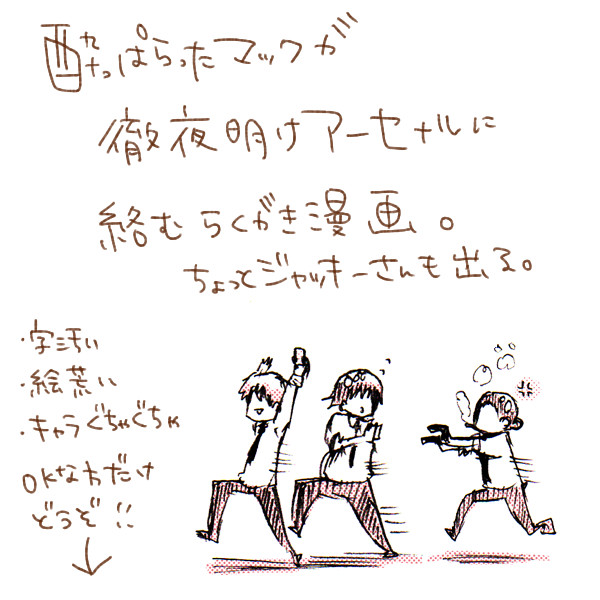 酔っぱらったマックが
徹夜明けアーセナルに
絡むらくがき漫画。
ちょっとジャッキーさんも出る。
・字汚い
・絵荒い
・キャラぐちゃぐちゃ
OKな方だけ
どうぞ!!